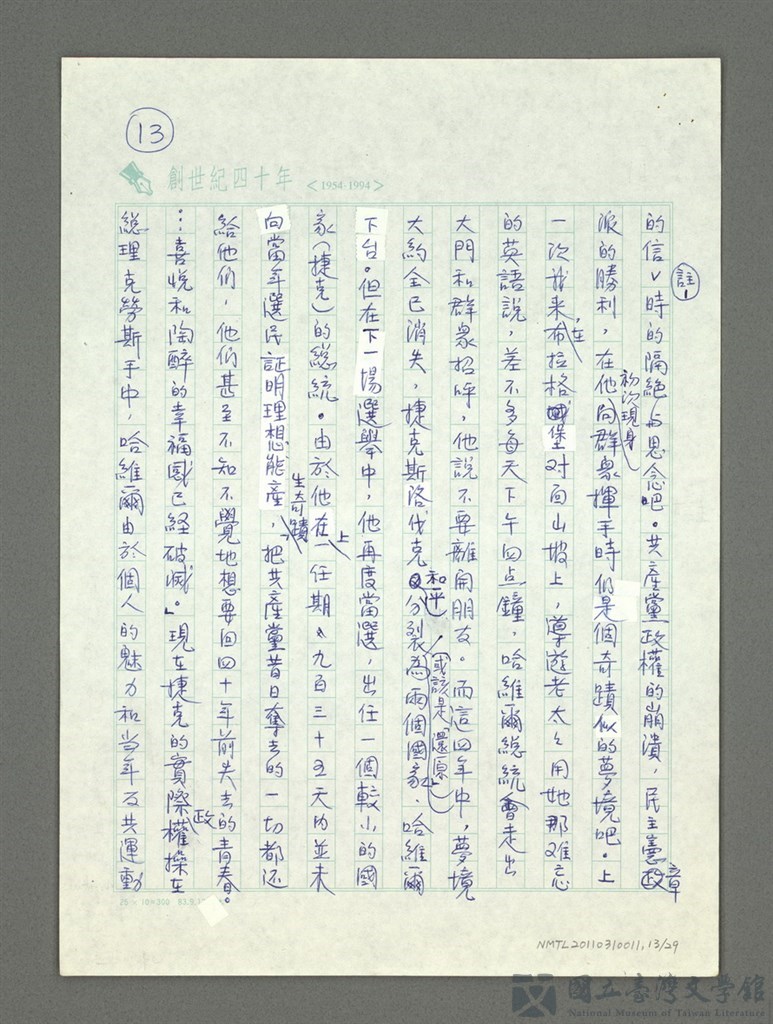 13
創世紀四十年 <1954-1994>
註1
的信v時的隔絕与思念吧。共產黨政權的崩潰,民主憲章
派的勝利,在他初次現身向群衆揮手時仍是個奇蹟似的夢境吧。上
一次我來在布拉格城堡对面山坡上,導遊老太太用她那难忘
的英語說,差不多每天下午四点鐘,哈維爾総統會走出
大門和群衆招呼,他說不要離開朋友。而這四年中,夢境
大約全已消失,捷克斯洛伐克和平分裂(或該是「還原」)為兩個國家、哈維爾
下台。但在下一場選舉中,他再度當選,出任一個較小的國
家(捷克)的総統。由於他在上一任期《九百三十五天內並未
向當年選民証明理想能產生奇蹟,把共產黨昔日奪去的一切都还
給他們,他們甚至不知不覺地想要回四十年前失去的青春。
…喜悅和陶醉的幸福感已経破滅。」現在捷克的實際政權操在
総理克勞斯手中,哈維爾由於個人的魅力和当年反共運動
25×10×300
NMTL20110310011,13/29
國立臺灣文學館
National Museum of Taiwan Literature